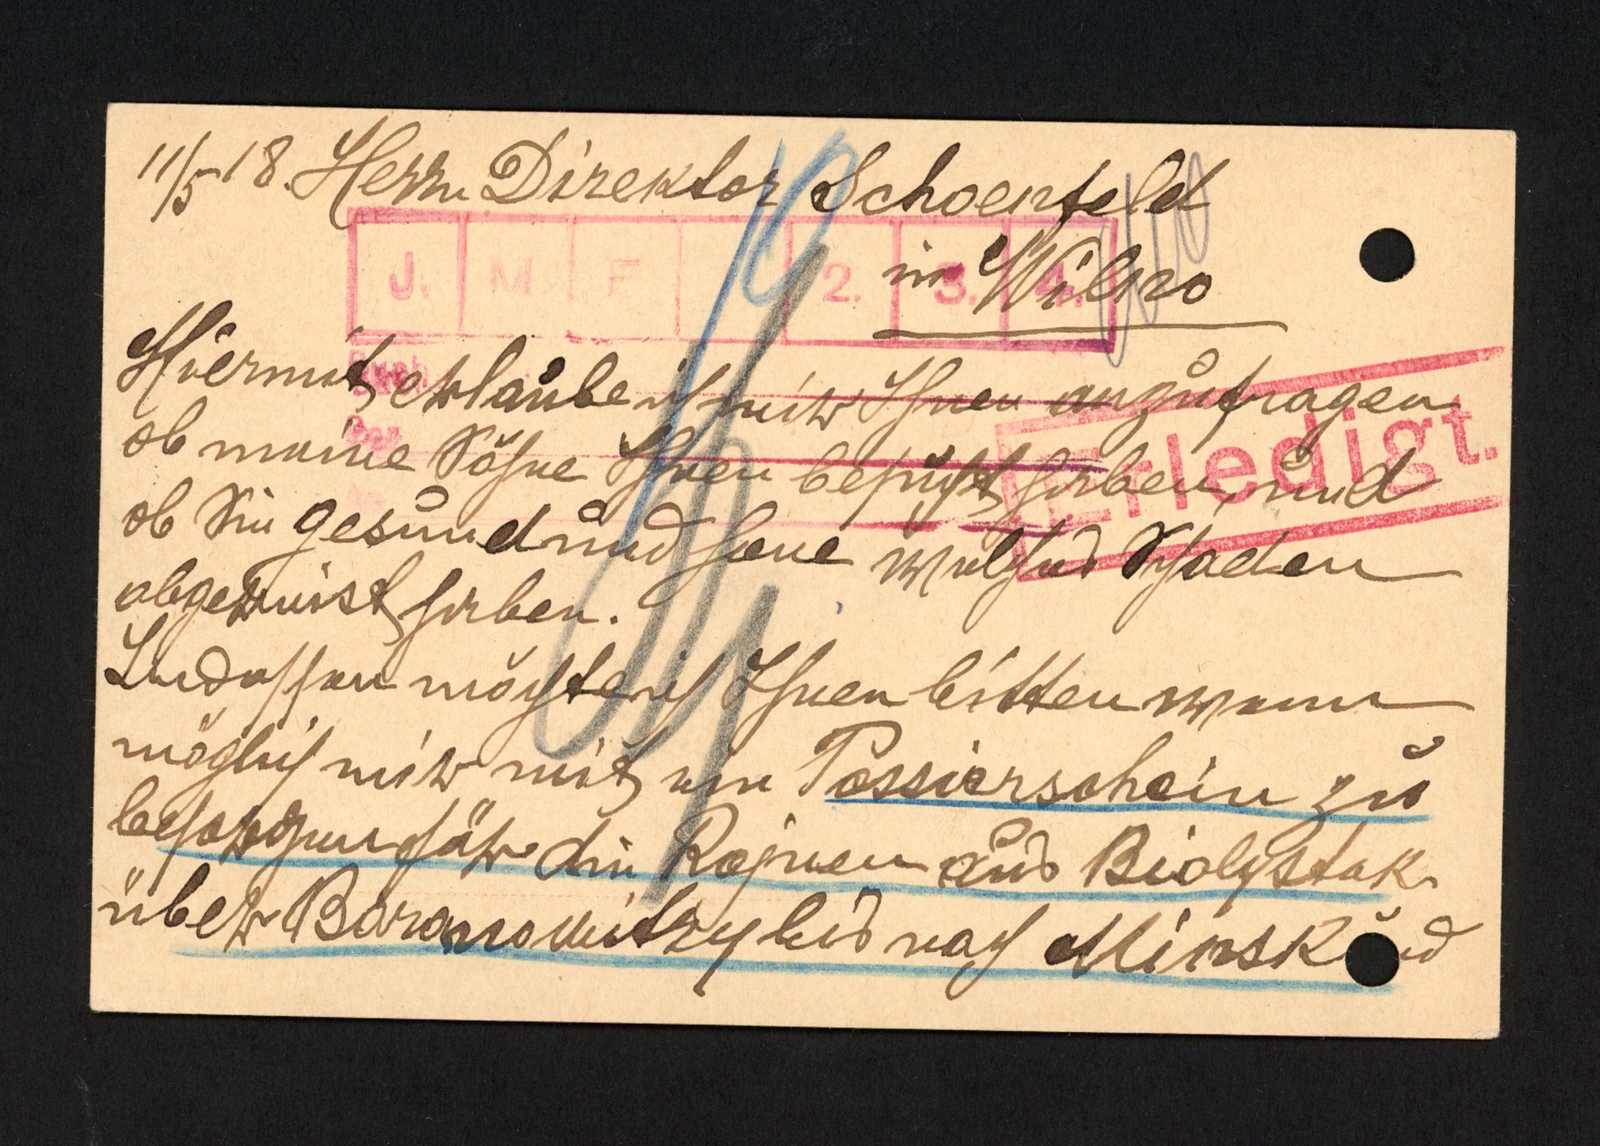 11/5 18. Herrn Direktor Schoenfeld
in Wilno
J. M F 2. 3. 4.
Hiermit erlaube ich mir Ihnen anzufragen
Erledigt.
ob meine Söhne Ihnen besucht haben, und
ob Sie gesund und Schaden
haben.
Indessen möchte ich Ihnen bitten wenn
möglich mir mit ein Passierschein zu
besorgen für die aus Bialystok
über Baranowitzy bis nach Minsk und